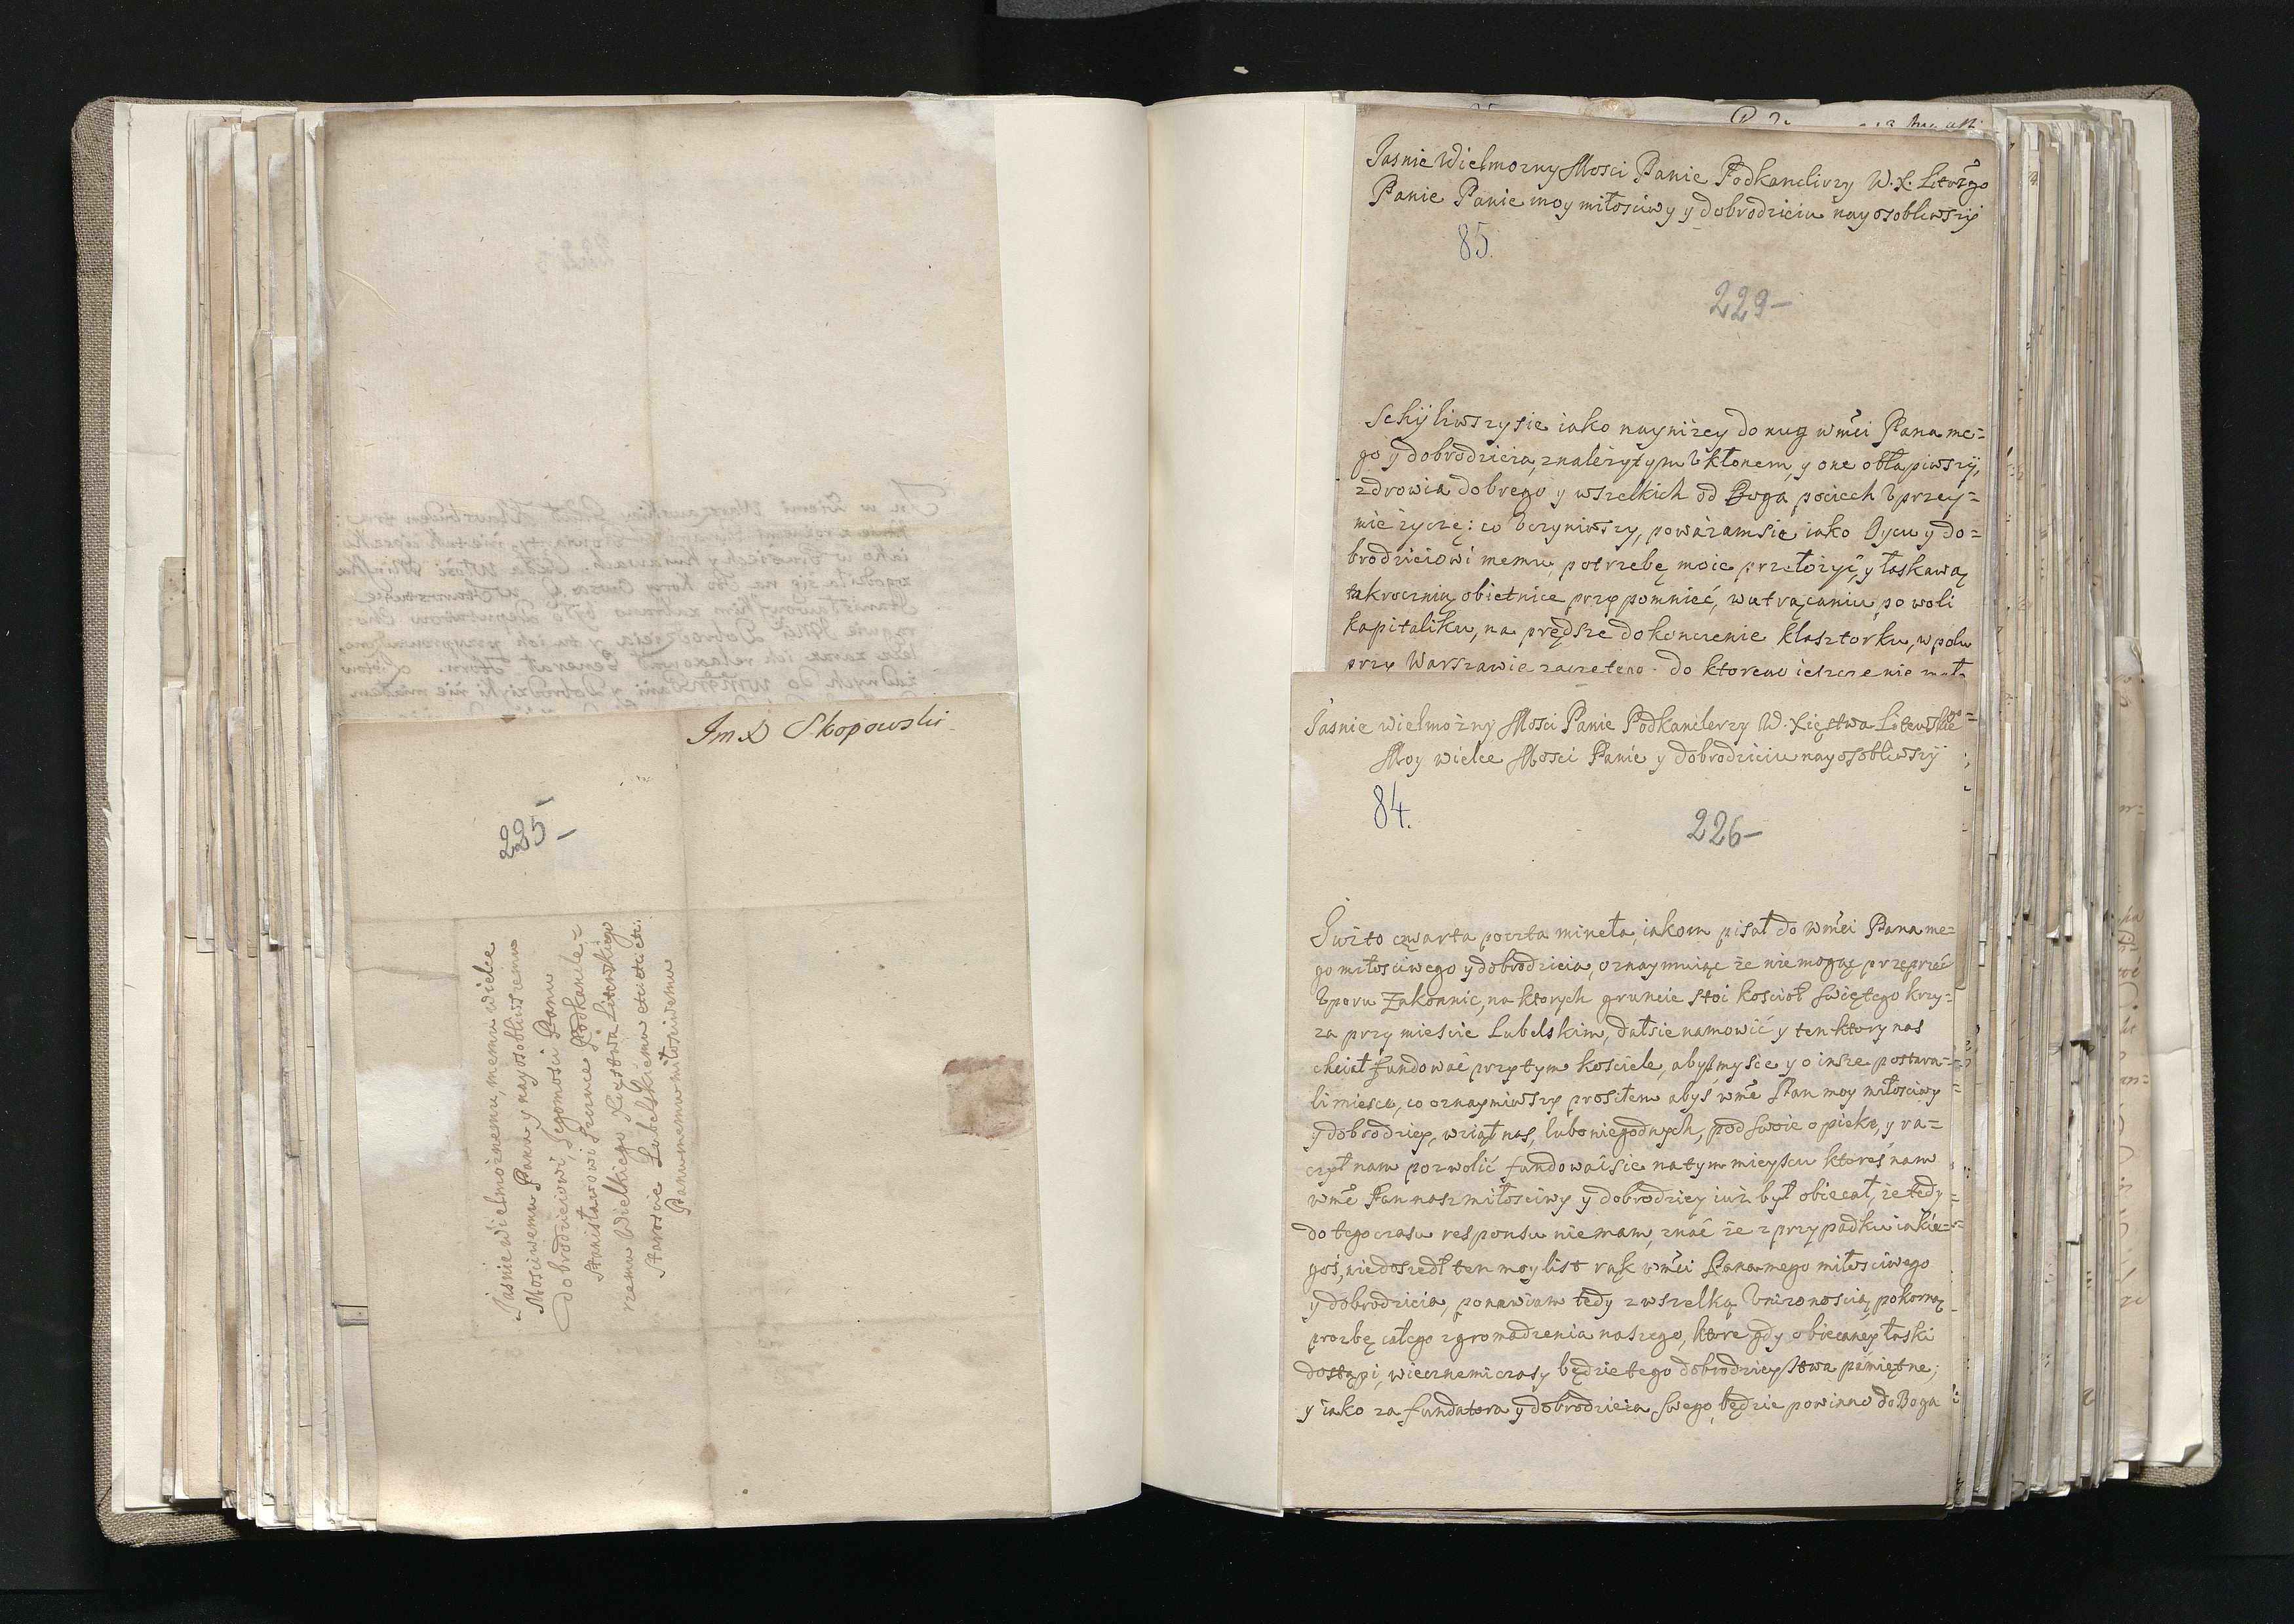 Im X Skopowski
225-
Jasnie wielmożnemu, memu wielce
Mosciwemu Panu y nayosobliwszemu
Dobrodzieiowi, Jegomosci Panu
Stanisławowi Szczuce Podkancle-
rzemu Wielkiego Xięstwa Litewskiego
Staroscie Lubelskiemu etc: etc: etc:
Panu memu miłosciwemu
Jasnie Wielmozny Mosci Panie Podkanclirzy W. X. Litew:go
Panie Panie moy miłosciwy y dobrodzieiu nayosobliwszy
85.
229-
Schyliwszy sie iako nayniżey do nug wmći Pana me=
go y dobrodzieia, z należytym ukłonem, y one obłapiwszy,
zdrowia dobrego y wszelkich od Boga pociech uprzey=
mie życzę: co uczyniwszy, poważam się iako Oycu y do=
brodzieiowi memu, potrzebę moie przełożyć, y łaskawą
takroczniu obietnice przypomnieć, wutrącaniu, po woli
kapitaliku, na prędsze dokonczenie klasztorku, w polu
przy Warszawie zaczętego. do ktorego ieszcze nie
Jasnie wielmożny Mosci Panie Podkanclerzy W. Xięstwa Litewskiego=
Moy wielce Mosci Panie y dobrodzieiu nayosobliwszy
84.
226-
Iuż to czwarta poczta mineła, iakom pisał do wmći Pana me=
go miłosciwego y dobrodzieia, oznaymuiąc że nie mogąc przeprzeć
uporu Zakonnic, na ktorych gruncie stoi kościoł świętego krzy=
za przy miescie Lubelskim, dał sie namowić y ten ktory nas
chciał fundować przy tym kościele, abyśmy sie y o insze postara=
li miesce, co oznaymiwszy prosiłem abyś wmć Pan moy miłosciwy
y dobrodziey, wziął nas, lubo niegodnych, pod swoie opiekę, y ra=
czył nam pozwolić fundować sie na tym mieyscu ktoreś nam
wmć Pan nasz miłosciwy y dobrodziey iuż był obiecał, że tedy
do tego czasu responsu nie mam, znać że z przypadku iakie=
goś, nie doszedł ten moy list rąk wmći Pana mego miłosciwego
y dobrodzieia, ponawiam tedy z wszelką unizonoscią pokorną
prozbę całego zgromadzenia naszego, ktore gdy obiecaney łaski
dostąpi, wiecznemi czasy będzie tego dobrodzieystwa pamiętne;
y iako za fundatora y dobrodzieia swego, będzie powinno do Boga